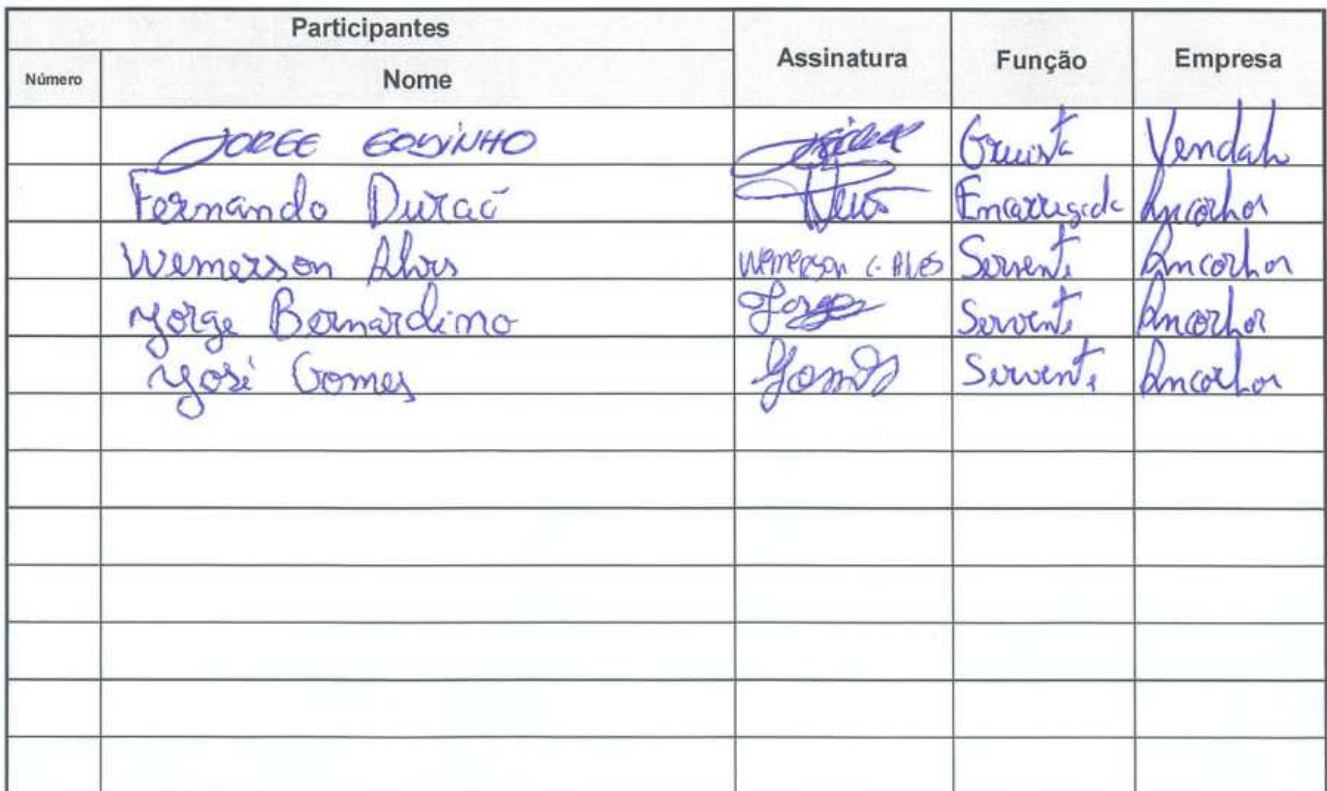 Participantes Assinatura Função Empresa
Número Nome
JORGE GODINHO Gruista Vendah
Fernando Duraõ Encarregado Ancorhor
Wemerson Alves WEMERSON C. ALVES Servente Ancorhor
Jorge Bernardino Jorge Servente Ancorhor
José Gomes Gomes Servente Ancorhor